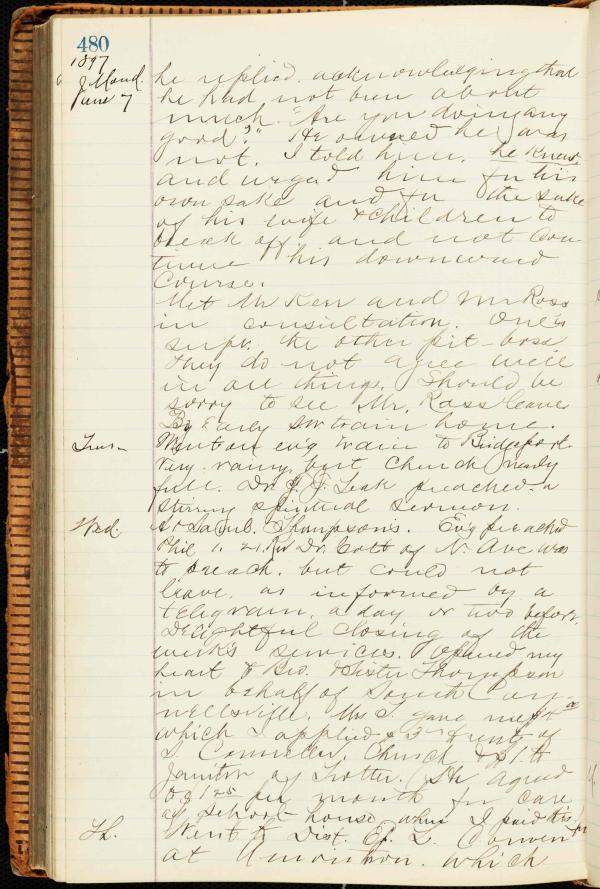 480
1897
Mond.
June 7
he replied. acknowledging that
he had not been about
much. "Are you doing any
good?" He owned he was
not. I told him, he knew
and urged him for his
own sake and for the sake
of his wife & children to
break off and not con-
tinue his downward
course.
Met Mr Kerr and Mr Ross
in consultation. One is
supt. the other pit-boss
They do not agree well
in all things. Should be
sorry to see Mr. Ross leave
By Early S.W. train home.
Tues.
Went on ev'g train to Bridgeport.
Very rainy, but church nearly
full. Dr. Leak preached a
stirring spiritual sermon.
Wed.
At Thompson's. Ev'g preached
Phil 1. 21. Rev Dr. of N. Ave was
to preach, but could not
leave, as informed by a
telegram, a day or two before.
Delightful closing of the
week's services. Opened my
heart to Bro. & Sister Thompson
in behalf of South Con-
nellsville. Mrs T. gave me
which I applied $ 3 rent of
S. Connells. Church & $1. to
Janitor of Trotter. She agreed
to per month for care
of school-house when I paid this.
Th.
Went to Dist. Ep. L. Conven
at which